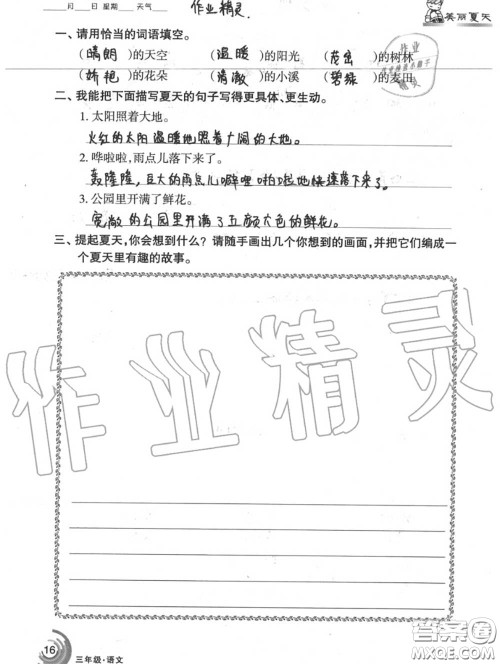 月 日 星期 天气 作业精灵.
美丽夏天
一、请用恰当的词语填空。
(晴朗)的天空 (温暖)的阳光 (茂密)的树林
(娇艳)的花朵 (清澈)的小溪 (碧绿)的麦田
作业
精灵
二、我能把下面描写夏天的句子写得更具体、更生动。
1. 太阳照着大地。
火红的太阳温暖地照着广阔的大地。
2. 哗啦啦,雨点儿落下来了。
轰隆隆,豆大的雨点儿噼哩啪啦地快速落下来了。
3. 公园里开满了鲜花。
宽敞的公园里开满了五颜六色的鲜花。
三、提起夏天,你会想到什么?请随手画出几个你想到的画面,并把它们编成一个
夏天里有趣的故事。
作业精灵
16
三年级·语文
答案圈
MXQE.COM